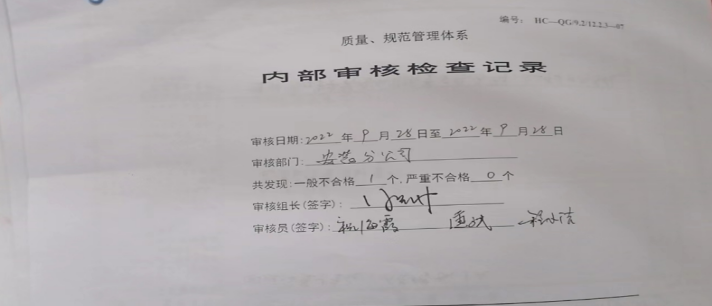 编号: HC—QG/9.2/12.2.3—07
质量、规范管理体系
内部审核检查记录
审核日期:2022年9月28日至2022年9月28日
审核部门: 安装分公司
共发现:一般不合格1个,严重不合格0个
审核组长(签字):
审核员(签字):